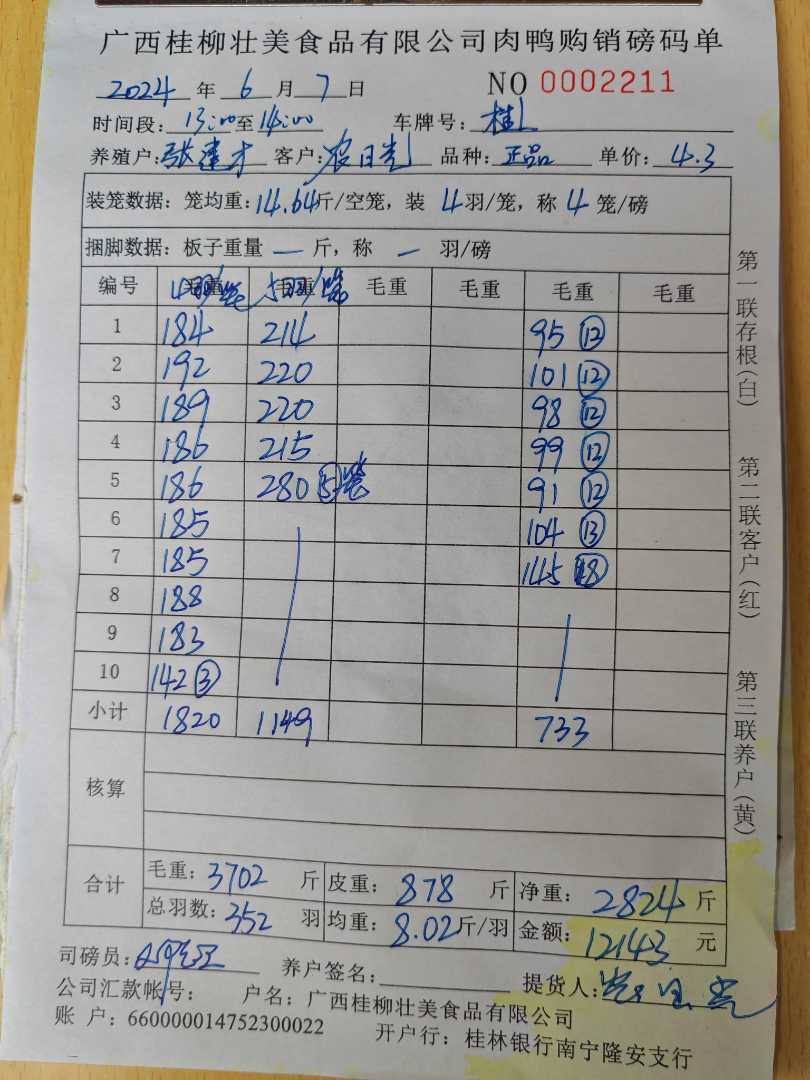 广西桂柳壮美食品有限公司肉鸭购销磅码单
2024 年 6 月 7 日 NO 0002211
时间段: 13:00 至 14:00 车牌号: 桂
养殖户: 张建才 客户: 农日光 品种: 正品 单价: 4.3
装笼数据: 笼均重: 14.64 斤/空笼, 装 4 羽/笼, 称 4 笼/磅
捆脚数据: 板子重量 — 斤, 称 — 羽/磅
编号 4羽/笼 5羽/笼 毛重 毛重 毛重 毛重
1 184 214 95 ⑫
2 192 220 101 ⑫
3 189 220 98 ⑫
4 186 215 99 ⑫
5 186 280 ⑤笼 91 ⑫
6 185 104 ⑬
7 185 145 ⑱
8 188
9 183
10 142 ③
小计 1820 1149 733
核算
合计 毛重: 3702 斤 皮重: 878 斤 净重: 2824 斤
总羽数: 352 羽 均重: 8.02 斤/羽 金额: 12143 元
司磅员: 养户签名: 提货人:
公司汇款帐号: 户名: 广西桂柳壮美食品有限公司
账 户: 660000014752300022 开户行: 桂林银行南宁隆安支行
第一联存根(白)
第二联客户(红)
第三联养户(黄)